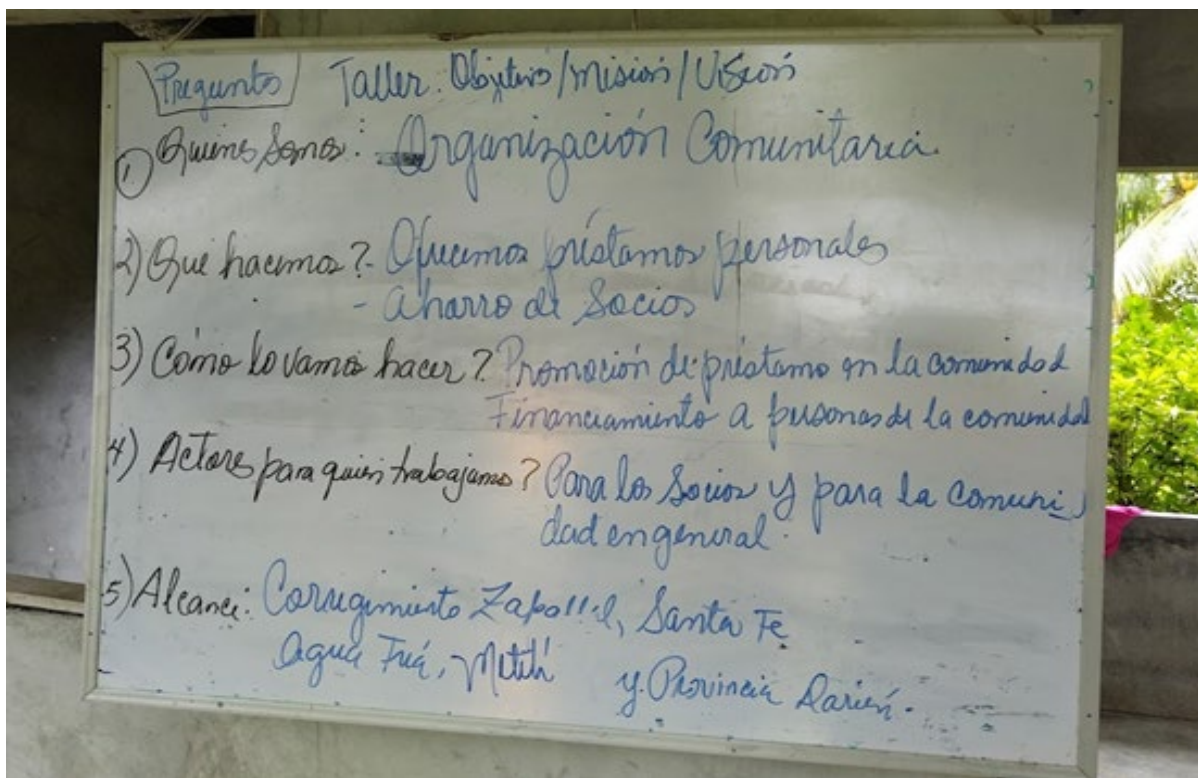 Preguntas Taller: Objetivo/Misión/Visión
1. Quiénes Somos: Organización Comunitaria.
2) Que hacemos? - Ofrecemos préstamos personales
- Ahorro de Socios
3) Cómo lo vamos hacer? Promoción de préstamo en la comunidad
Financiamiento a personas de la comunidad
4) Actores para quien trabajamos? Para los Socios y para la comuni
dad en general.
5) Alcance: Corregimiento Zapallal, Santa Fe
Agua Fría, Metetí y Provincia Darién.